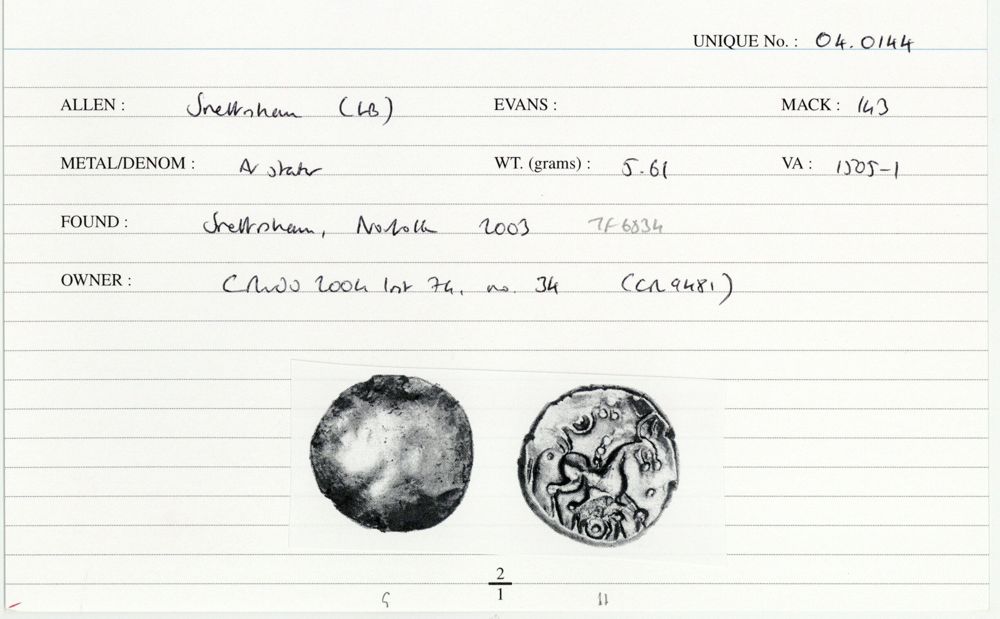 UNIQUE No. : 04.0144
ALLEN : Snettisham (LB) EVANS : MACK : 143
METAL/DENOM : AV stater WT. (grams) : 5.61 VA : 1505-1
FOUND : Snettisham, Norfolk 2003 TF6834
OWNER : 2004 lot 74, no. 34 (CR9481)
2
1